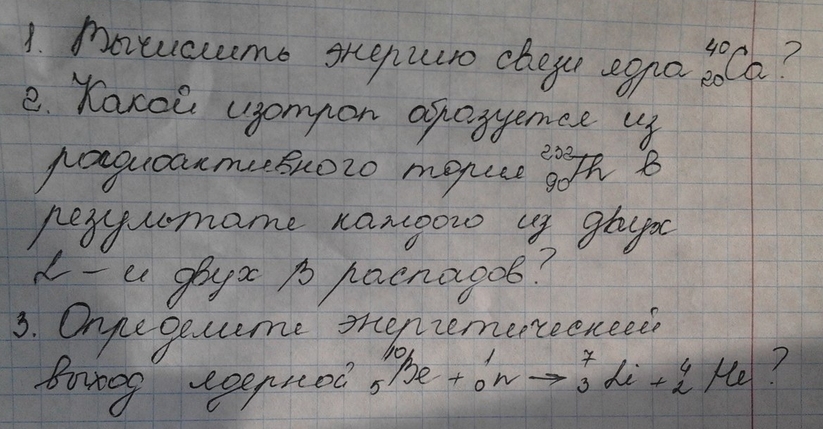 1. Вычислить энергию свези ядра ⁴⁰₂₀Ca?
2. Какой изотроп образуется из
радиоактивного тория ²³²₉₀Th в
результате каждого из двух
α - и двух β распадов?
3. Определите энергетический
выход ядерной ¹⁰₅Be + ¹₀n → ⁷₃Li + ⁴₂He?